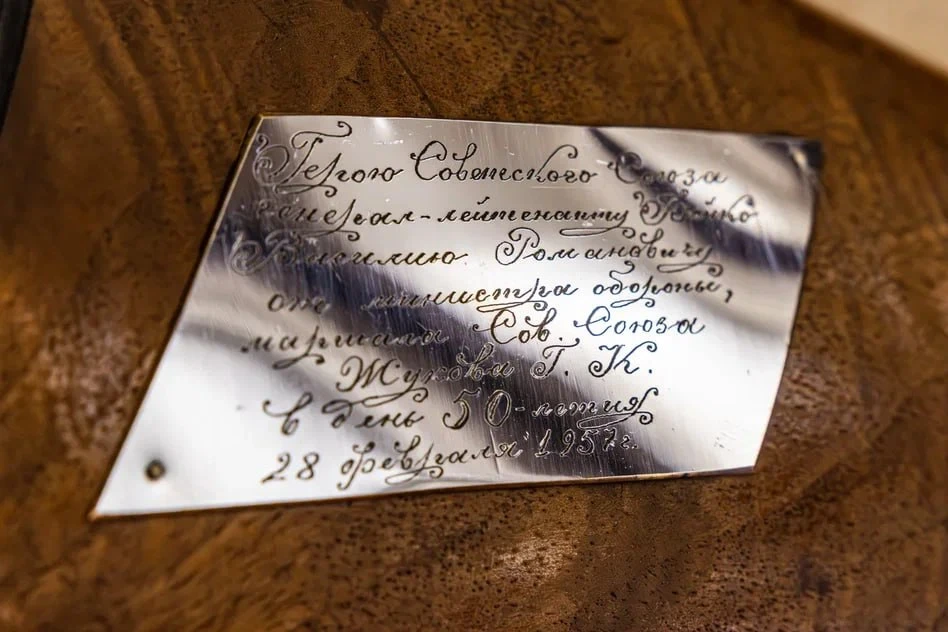 Герою Советского Союза
генерал-лейтенанту Бойко
Василию Романовичу
от министра обороны,
маршала Сов. Союза
Жукова Г. К.
в день 50-летия
28 февраля 1957г.